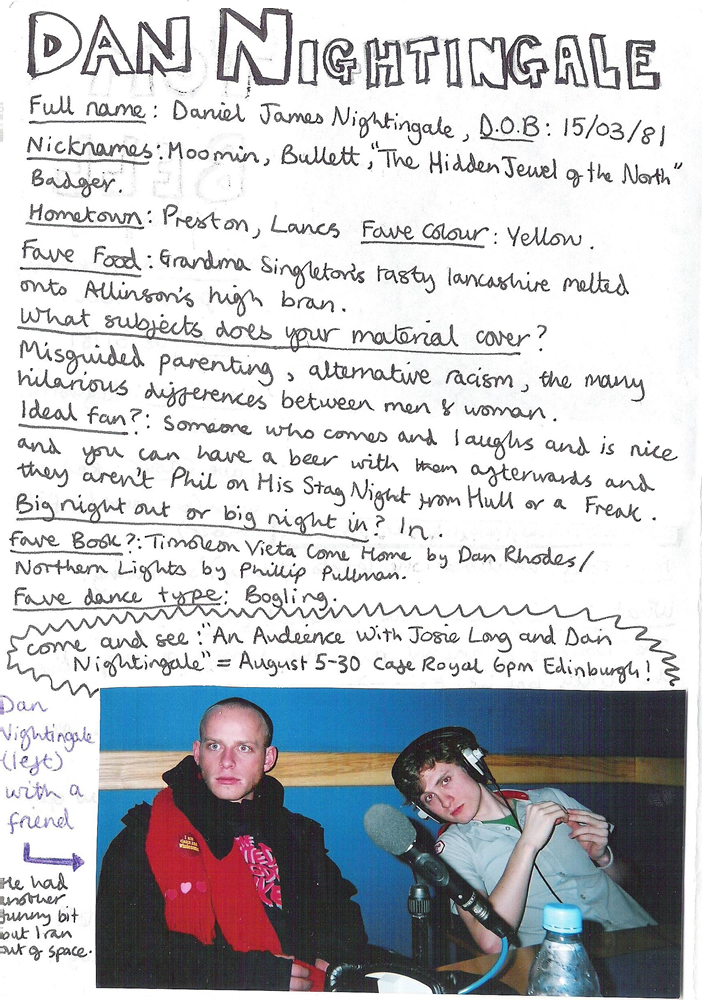 DAN NIGHTINGALE
Full name: Daniel James Nightingale, D.O.B: 15/03/81
Nicknames: Moomin, Bullett, "The Hidden Jewel of the North"
Badger.
Hometown: Preston, Lancs Fave colour: Yellow.
Fave Food: Grandma Singleton's tasty lancashire melted
onto Allinson's high bran.
What subjects does your material cover?
Misguided parenting, alternative racism, the many
hilarious differences between men & woman.
Ideal fan?: Someone who comes and laughs and is nice
and you can have a beer with them afterwards and
they aren't Phil on His Stag Night from Hull or a Freak.
Big night out or big night in? In.
Fave Book?: Timoleon Vieta Come Home by Dan Rhodes/
Northern Lights by Phillip Pullman.
Fave dance type: Bogling.
come and see: "An Audeince With Josie Long and Dan
Nightingale" = August 5-30 Cafe Royal 6pm Edinburgh!
Dan
Nightingale
(left)
with a
friend
He had
another
funny bit
but I ran
out of space.